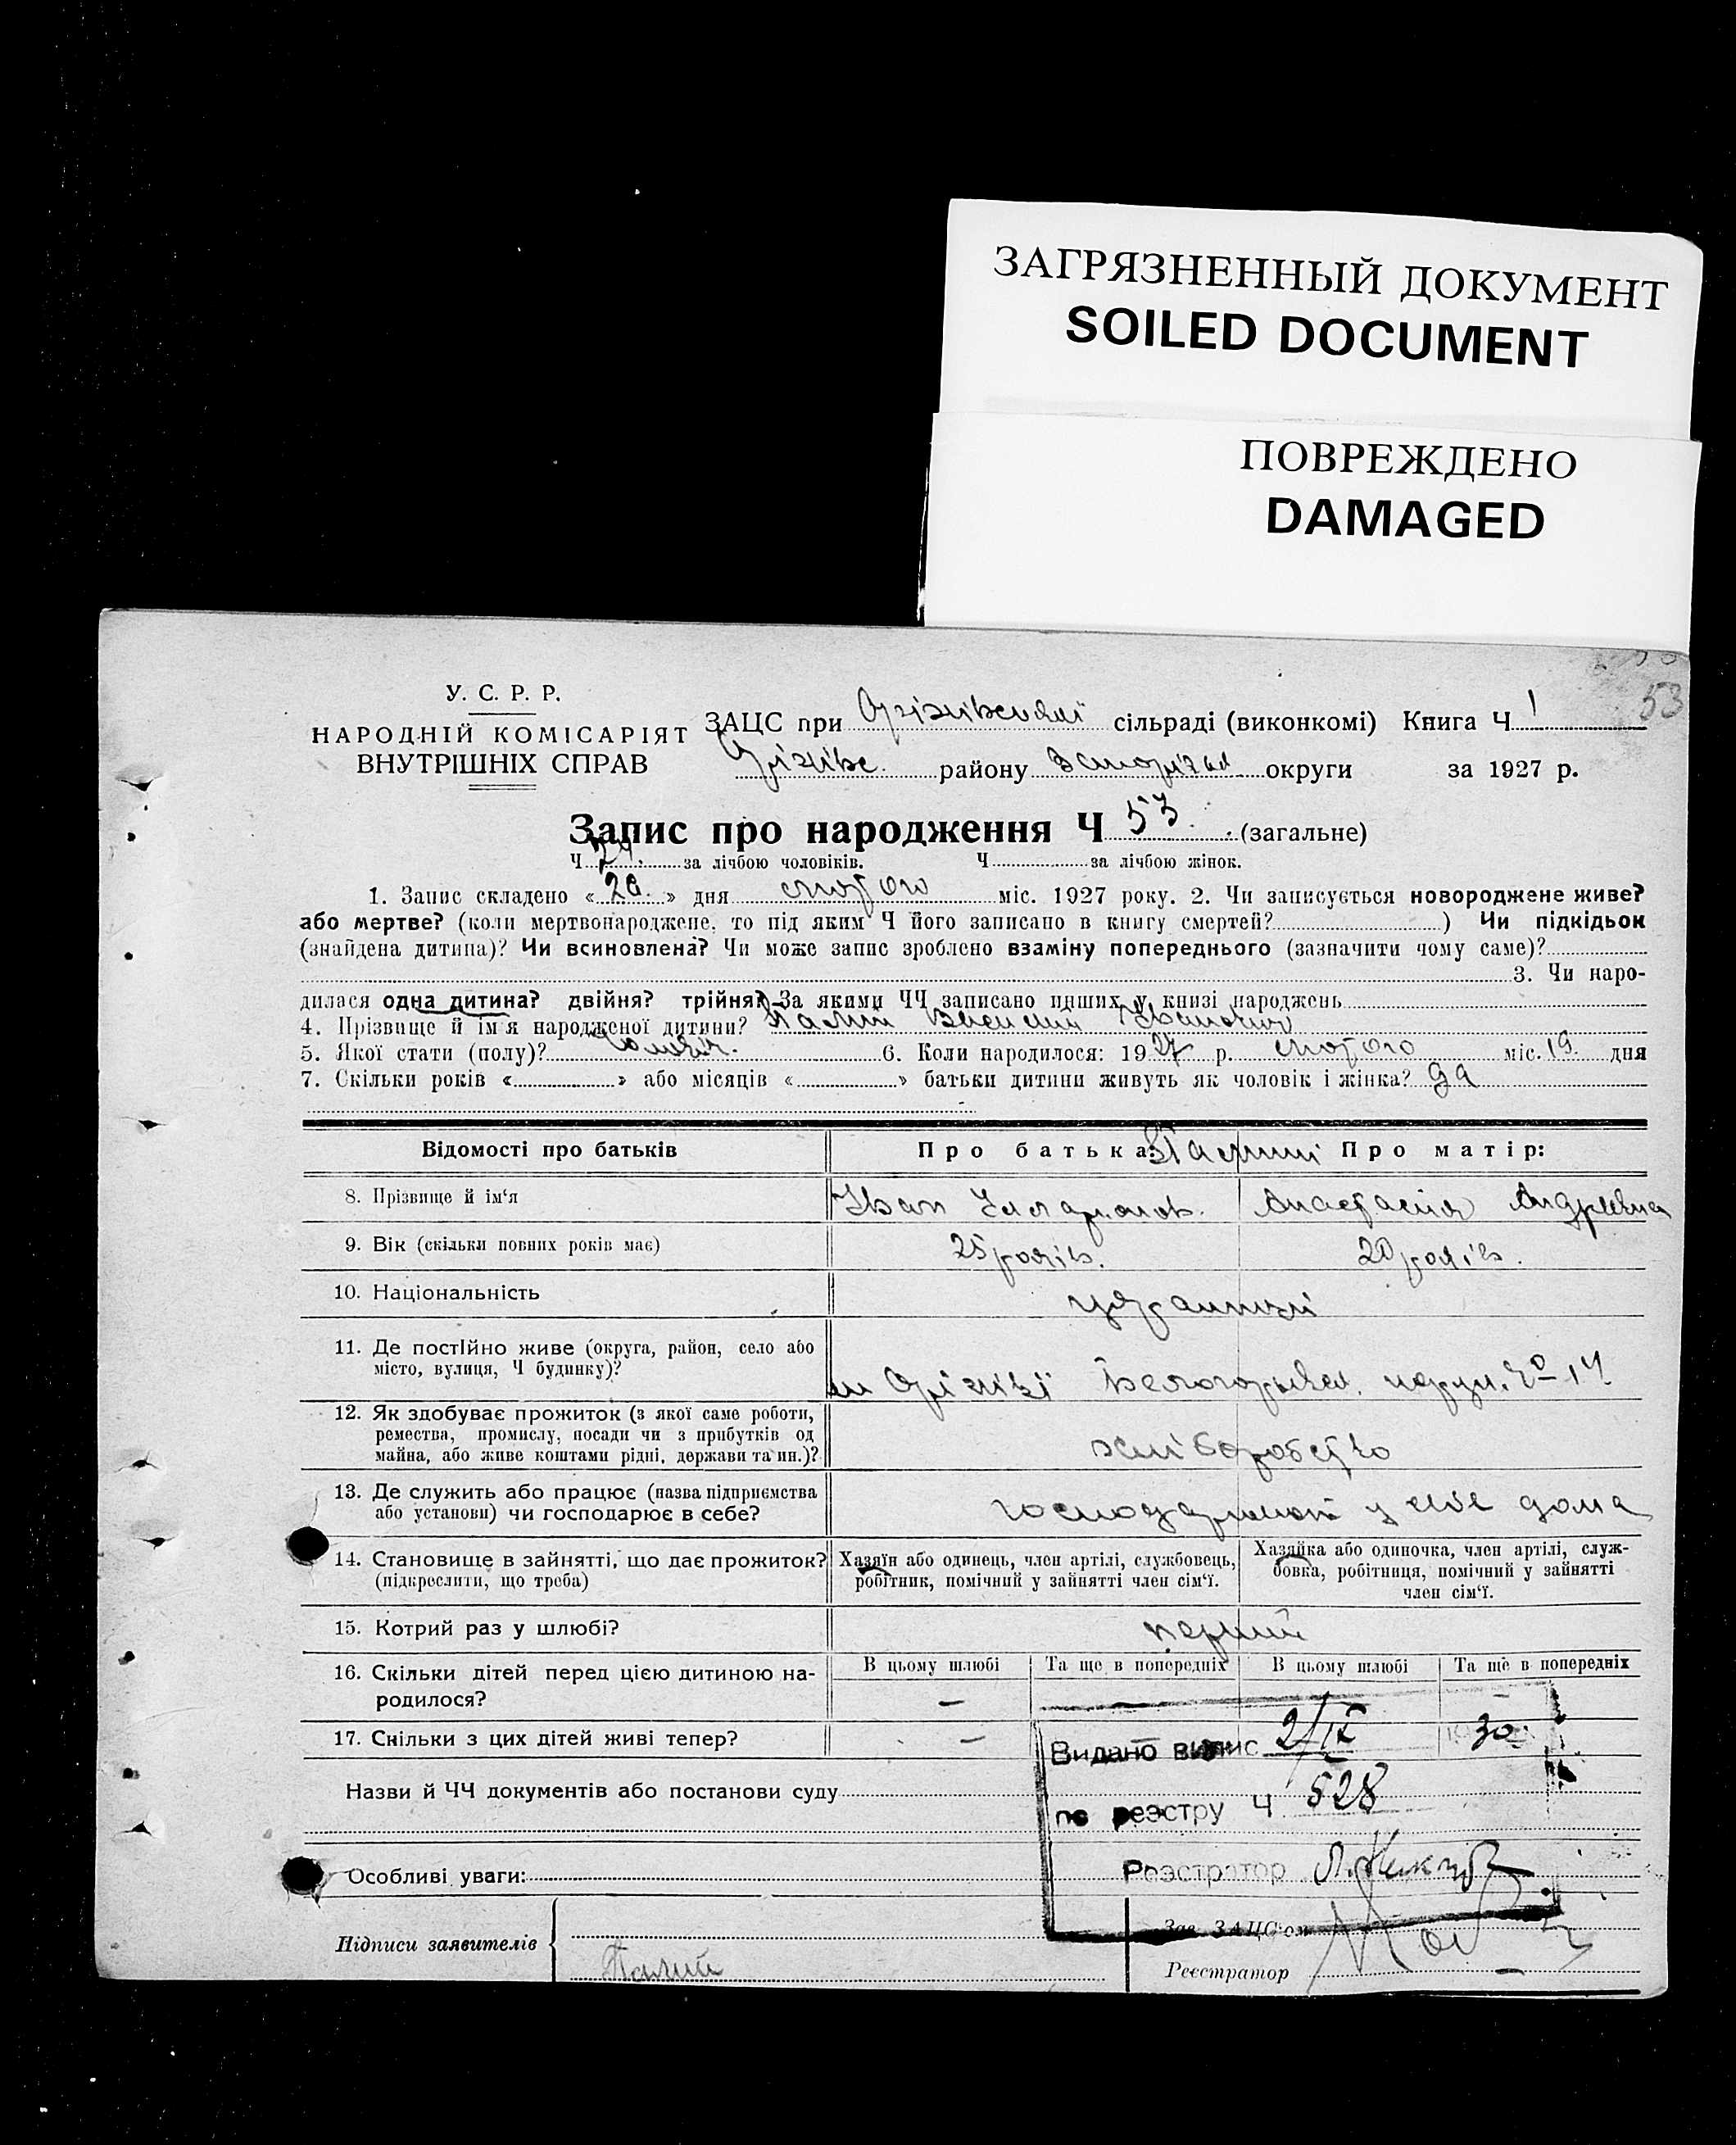 ЗАГРЯЗНЕННЫЙ ДОКУМЕНТ
SOILED DOCUMENT
ПОВРЕЖДЕНО
DAMAGED
53
У. С. Р. Р.
НАРОДНІЙ КОМІСАРІЯТ
ВНУТРІШНІХ СПРАВ
ЗАЦС при Оріхівській сільраді (виконкомі) Книга Ч 1
Оріхівс. району Запоріжськ округи за 1927 р.
Запис про народження Ч 53. (загальне)
Ч 24. за лічбою чоловіків. Ч за лічбою жінок.
1. Запис складено « » дня лютого міс. 1927 року. 2. Чи записується новороджене живе?
або мертве? (коли мертвонароджене, то під яким Ч його записано в книгу смертей? ) Чи підкідьок
(знайдена дитина)? Чи всиновлена? Чи може запис зроблено взаміну попереднього (зазначити чому саме)?
3. Чи наро-
дилася одна дитина? двійня? трійня? За якими ЧЧ записано инших у книзі народжень
4. Прізвище й ім'я народженої дитини? Палий Іванович
5. Якої стати (полу)? Чоловіч. 6. Коли народилося: 1927 р. лютого міс. 19 дня
7. Скільки років « » або місяців « » батьки дитини живуть як чоловік і жінка? да
Відомості про батьків Про батька: Палий Про матір:
8. Прізвище й ім'я Іван Іларионов. Анастасия Андреевна
9. Вік (скільки повних років має) 25 років. 20 років.
10. Національність українці
11. Де постійно живе (округа, район, село або
місто, вулиця, Ч будинку)? м Оріхові Белогорьевск. № 14
12. Як здобуває прожиток (з якої саме роботи,
ремества, промислу, посади чи з прибутків од
майна, або живе коштами рідні, держави та ин.)? хліборобство
13. Де служить або працює (назва підприємства
або установи) чи господарює в себе? у себе дома
14. Становище в зайнятті, що дає прожиток?
(підкреслити, що треба)
Хазяїн або одинець, член артілі, службовець,
робітник, помічний у зайнятті член сім'ї.
Хазяйка або одиночка, член артілі, служ-
бовка, робітниця, помічний у зайнятті
член сім'ї.
15. Котрий раз у шлюбі? перший
16. Скільки дітей перед цією дитиною на-
родилося?
В цьому шлюбі Та ще в попередніх В цьому шлюбі Та ще в попередніх
– – –
17. Скільки з цих дітей живі тепер? –
Видано випис 2/IX 1930
по реэстру Ч 528
Реэстратор
Назви й ЧЧ документів або постанови суду
Особливі уваги:
Підписи заявителів Палий
Зав. ЗАЦС'ом
Реєстратор